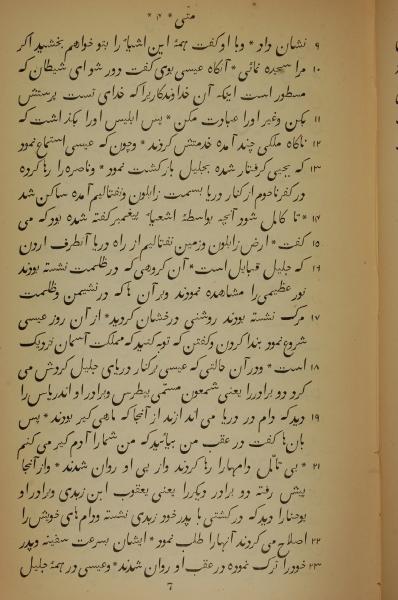 متی * ۴ *
۹ نشان داد * وبا او گفت همهٔ این اشیارا بتو خواهم بخشید اگر
۱۰ مرا سجده نمائی * آنگاه عیسی بوی گفت دور شو ای شیطان که
مسطور است اینکه آن خداوندکاریرا که خدای تست پرستش
۱۱ بکن وغیر اورا عبادت مکن * پس ابلیس اورا بگذاشت که
۱۲ ناگاه ملکی چند آمده خدمتش کردند * وچون که عیسی استماع نمود
۱۳ که یحیی گرفتار شده بجلیل بازگشت نمود * وناصره را رها کرده
در کفرناحوم از کنار دریا بسمت زابلون ونفتالیم آمده ساکن شد
۱۴ * تا کامل شود آنچه بواسطهٔ اشعیاء پیغمبر گفته شده بود که می
۱۵ گفت * ارض زابلون وزمین نفتالیم از راه دریا آنطرف اردن
۱۶ که جلیل قبایل است * آن گروهی که در ظلمت نشسته بودند
نور عظیمی را مشاهده نمودند وبر آن ها که در نشیمن وظلمت
۱۷ مرگ نشسته بودند روشنی درخشان گردید * از آن روز عیسی
شروع نمود بندا کردن وگفتن که توبه کنید که مملکت آسمان نزدیک
۱۸ است * ودر آن حالتی که عیسی بر کنار دریای جلیل گردش می
کرد دو برادررا یعنی شمعون مسمی بپطرس وبرادر او اندریاس را
۱۹ دید که دام در دریا می اندازند از آنجا که ماهی گیر بودند * پس
بآن ها گفت در عقب من بیائید که من شمارا آدم گیر می کنم
۲۱ * بی تامل دامهارا رها کردند واز پی او روان شدند * واز آنجا
پیش رفته دو برادر دیگررا یعنی یعقوب ابن زبدی وبرادر او
یوحنارا دید که در کشتی با پدر خود زبدی نشسته ودام های خویش را
۲۲ اصلاح می کردند آنهارا طلب نمود * ایشان بسرعت سفینه وپدر
۲۳ خودرا ترک نموده در عقب او روان شدند * وعیسی در همهٔ جلیل
۶